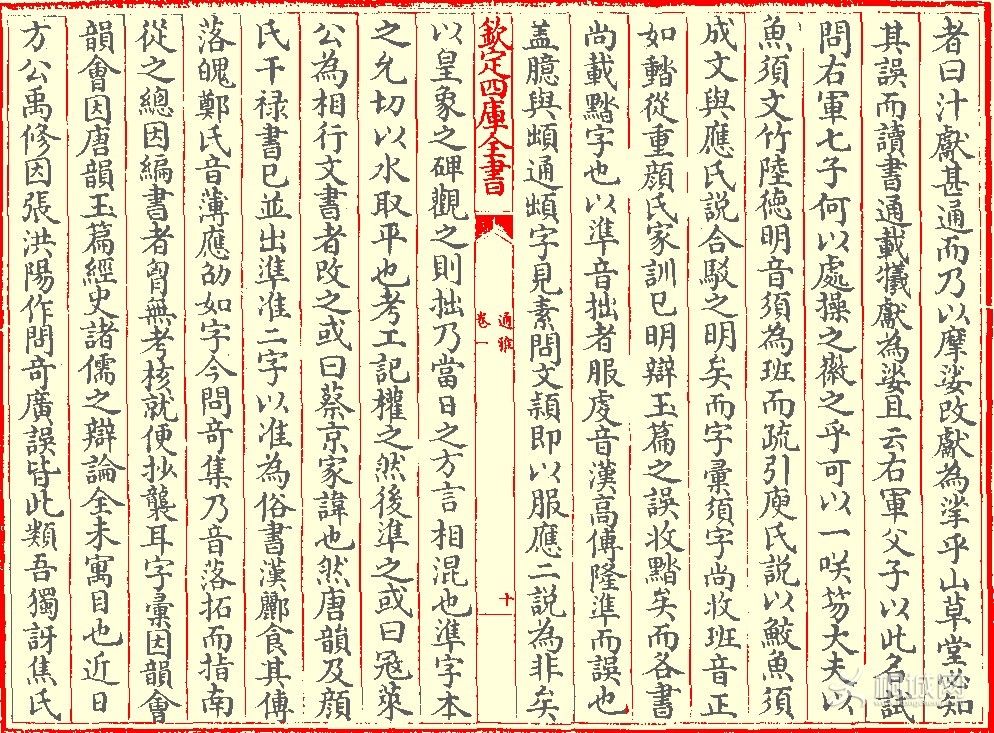 者曰汁獻甚通而乃以摩娑改獻為挲乎山草堂不知
其誤而讀書通載犧獻為娑且云右軍父子以此名試
問右軍七子何以處操之徽之乎可以一咲笏大夫以
魚須文竹陸徳明音須為班而疏引庾氏説以鮫魚須
成文與應氏説合駁之明矣而字彙須字尚收班音正
如黈從重顔氏家訓已明辯玉篇之誤收黠矣而各書
尚載黠字也以準音拙者服虔音漢高傅隆準而誤也
盖臆與䪼通䪼字見素問文穎即以服應二説為非矣
欽定四庫全書
通雅
卷一
十
以皇象之碑觀之則拙乃當日之方言相混也準字本
之允切以水取平也考工記權之然後準之或曰冦萊
公為相行文書者改之或曰蔡京家諱也然唐韻及顔
氏干禄書已並出準准二字以准為俗書漢酈食其傅
落魄鄭氏音薄應劭如字今問竒集乃音落拓而指南
從之總因編書者胷無考核就便抄襲耳字彙因韻會
韻會因唐韻玉篇經史諸儒之辯論全未寓目也近日
方公禹修因張洪陽作問竒廣誤皆此類吾獨訝焦氏